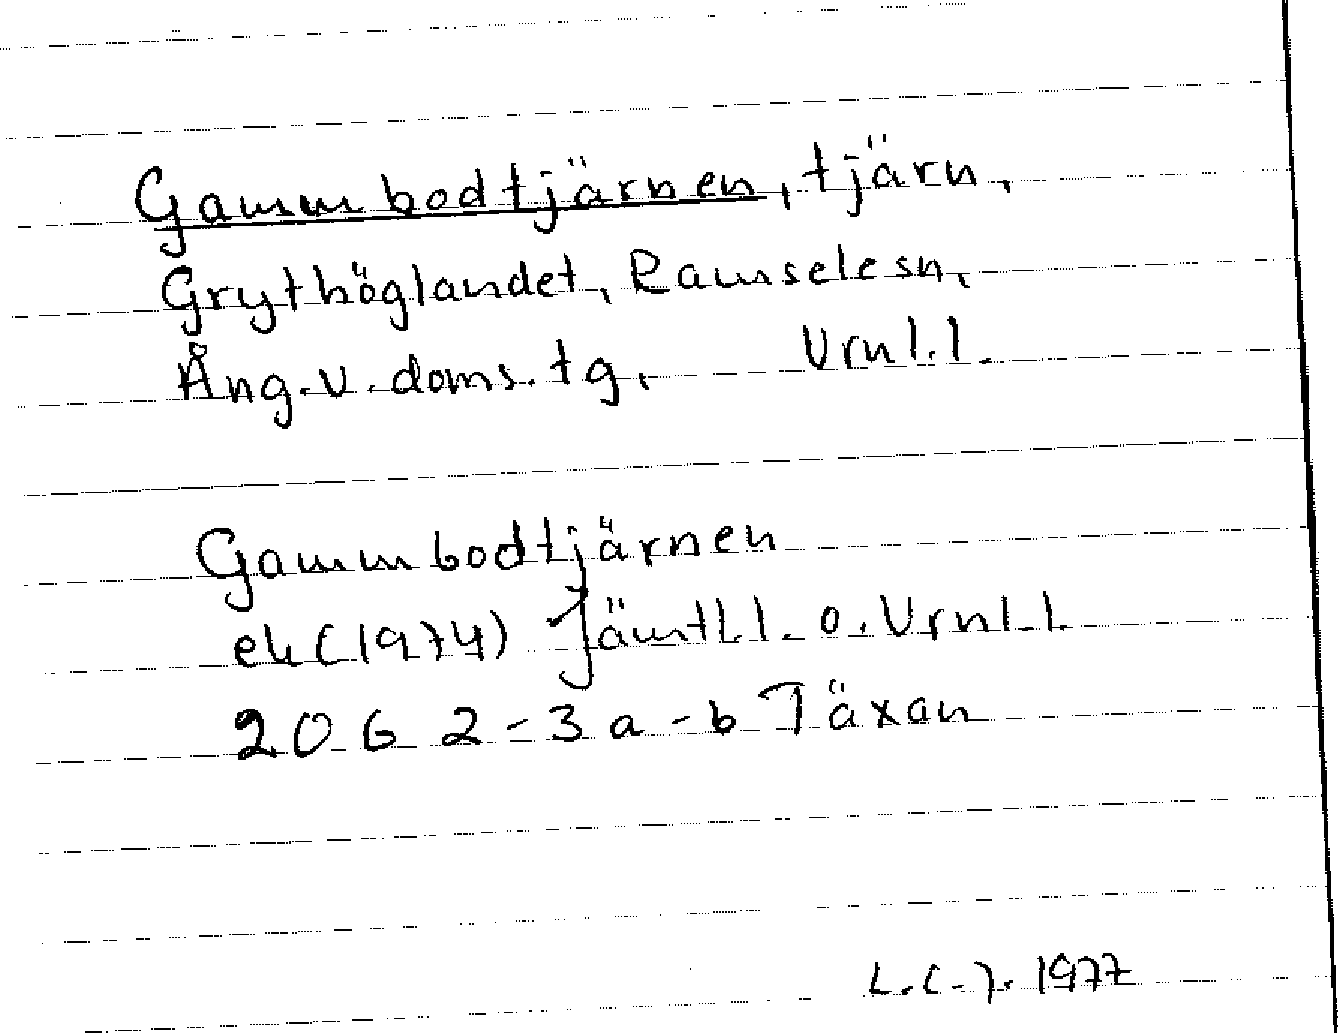 Gammbodtjärnen, tjärn,
Grythöglandet, Ramselesn,
Ång. v. doms. tg, Vrnl. l.
Gammbodtjärnen
ek (1974) Jämtl. l. o. Vrnl. l.
20G 2-3 a-b Täxan
L.C.J. 1977